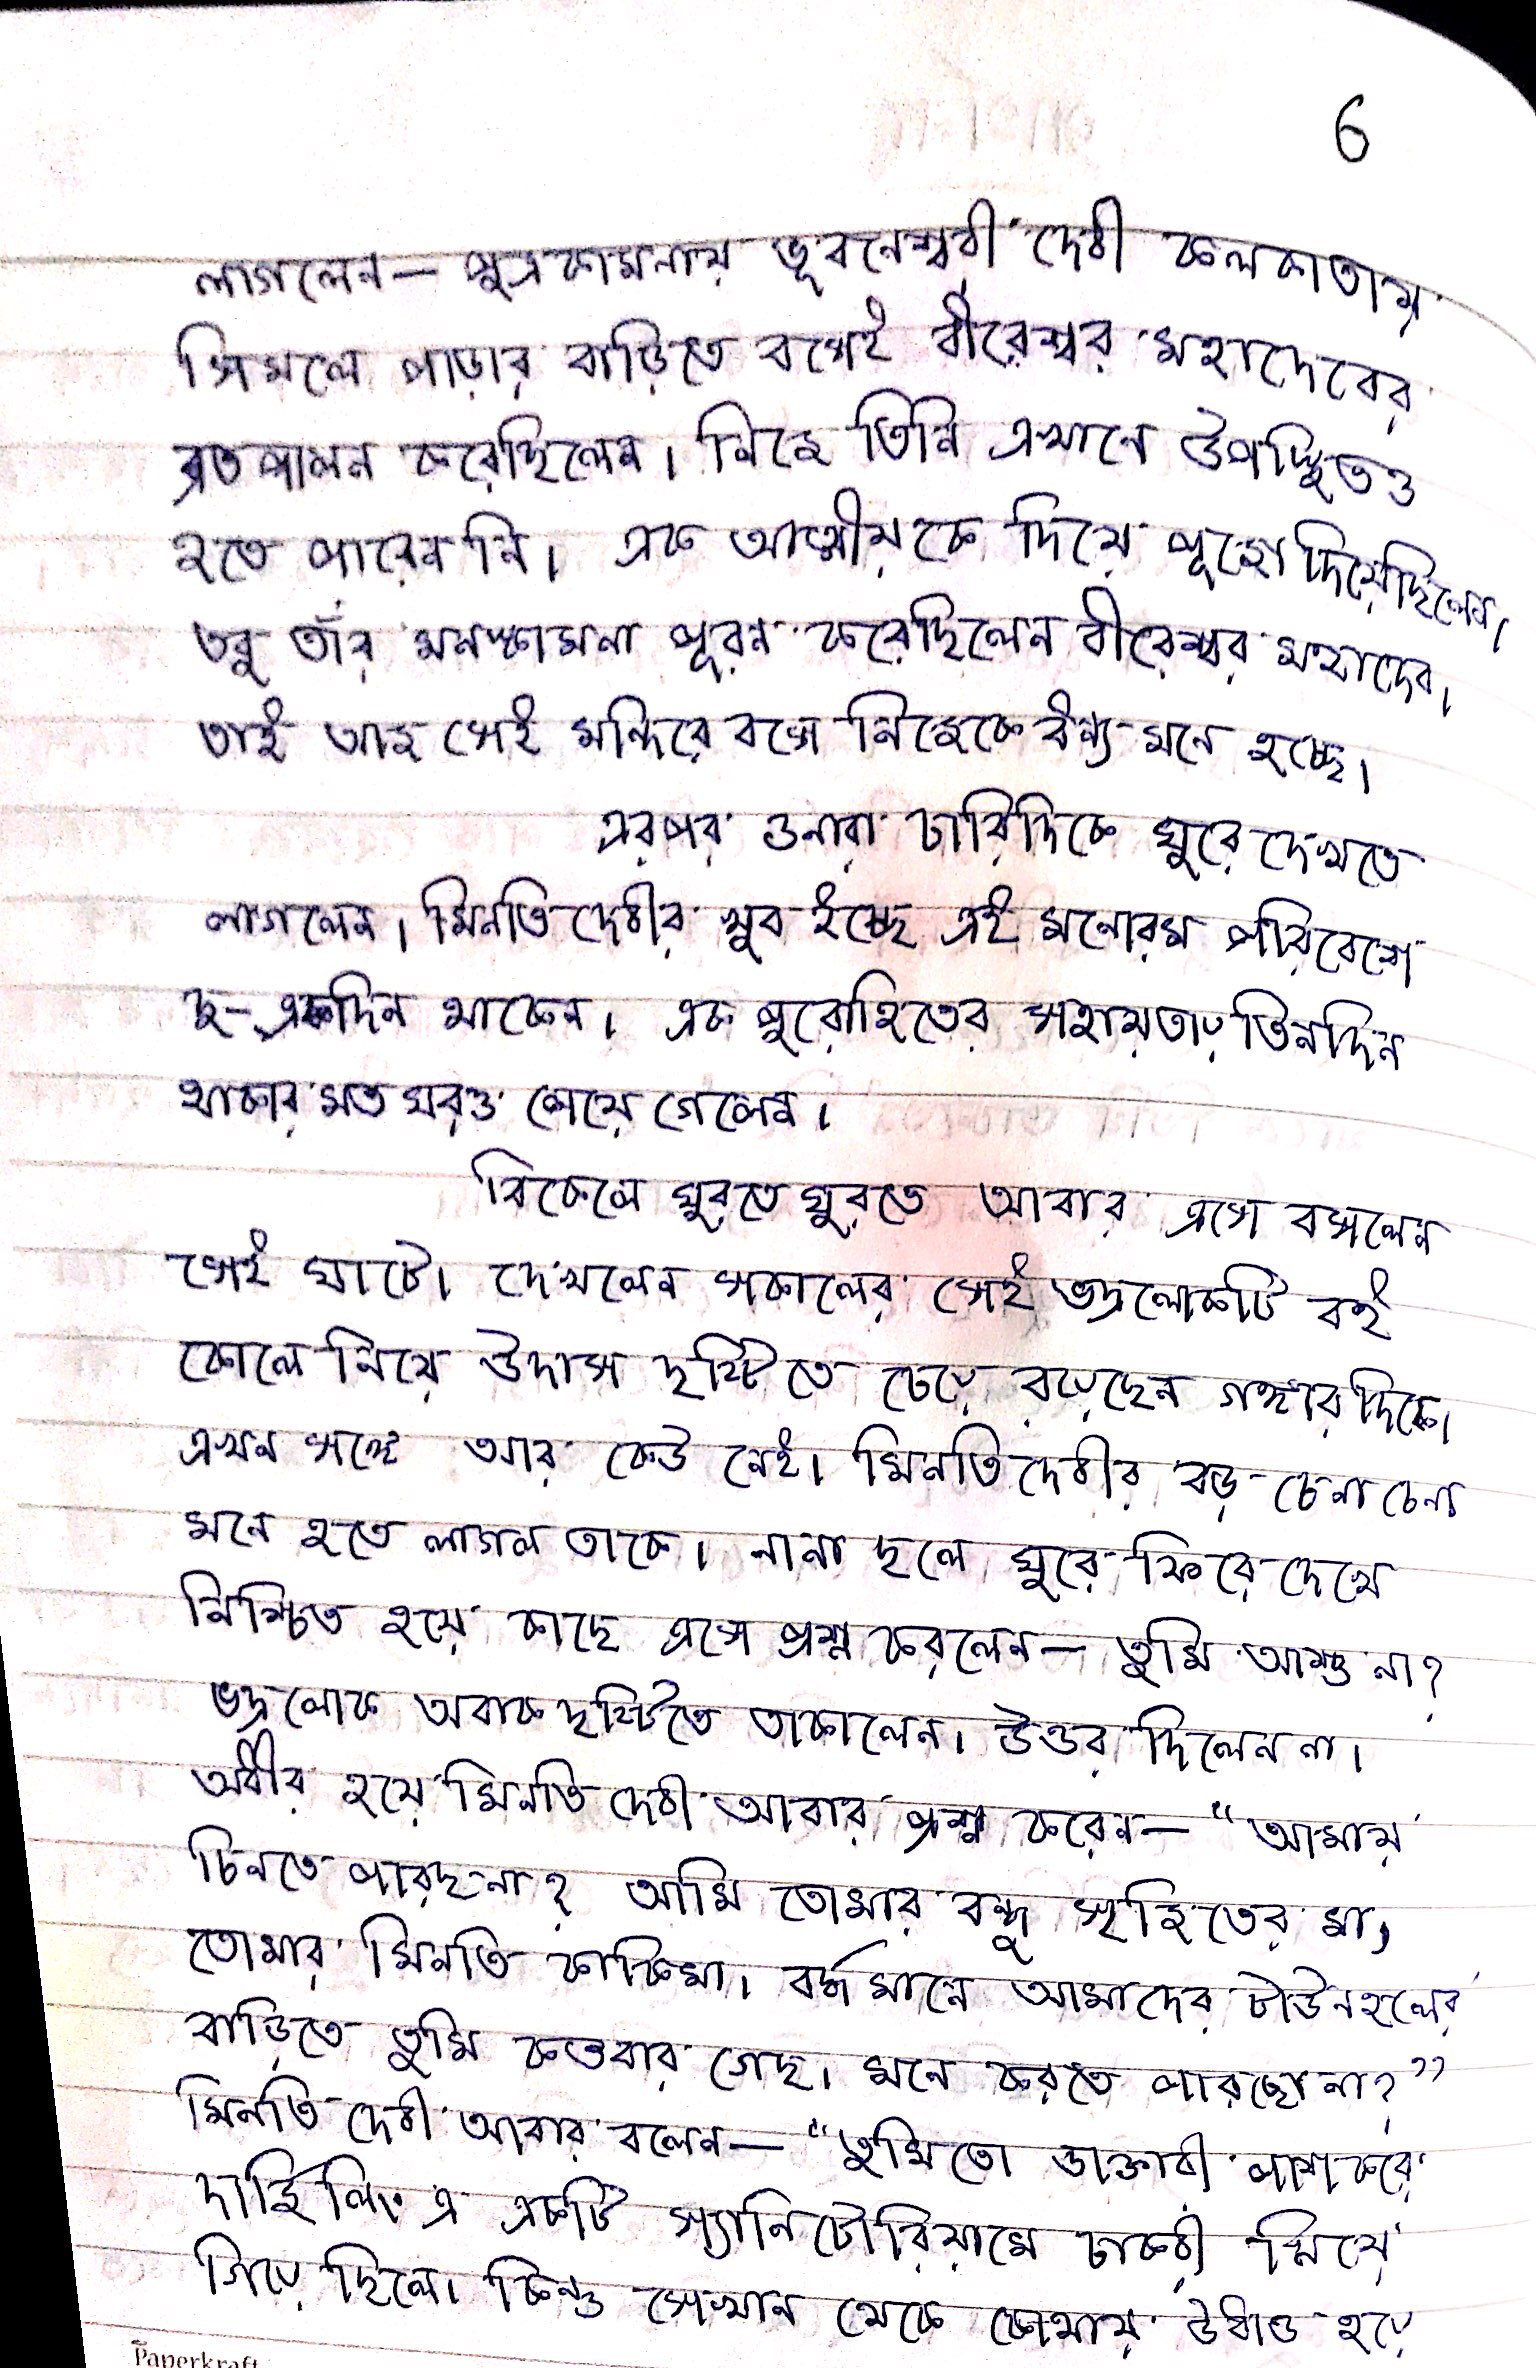 6
লাগলেন— পুত্রকামনায় ভূবনেশ্বরী দেবী কলকাতায়
সিমলে পাড়ার বাড়িতে বসেই বীরেশ্বর মহাদেবের
ব্রত পালন করেছিলেন। নিজে তিনি এখানে উপস্থিতও
হতে পারেন নি। এক আত্মীয়কে দিয়ে পূজো দিয়েছিলেন।
তবু তাঁর মনস্কামনা পূরন করেছিলেন বীরেশ্বর মহাদেব।
তাই আজ সেই মন্দিরে বসে নিজেকে ধন্য মনে হচ্ছে।
এরপর ওনারা চারিদিকে ঘুরে দেখতে
লাগলেন। মিনতি দেবীর খুব ইচ্ছে এই মনোরম পরিবেশে
দু-একদিন থাকেন। এক পুরোহিতের সহায়তায় তিনদিন
থাকার মত ঘরও পেয়ে গেলেন।
বিকেলে ঘুরতে ঘুরতে আবার এসে বসলেন
সেই ঘাটে। দেখলেন সকালের সেই ভদ্রলোকটি বই
কোলে নিয়ে উদাস দৃষ্টিতে চেয়ে রয়েছেন গঙ্গার দিকে।
এখন সঙ্গে আর কেউ নেই। মিনতি দেবীর বড় চেনা চেনা
মনে হতে লাগল তাকে। নানা ছলে ঘুরে ফিরে দেখে
নিশ্চিত হয়ে কাছে এসে প্রশ্ন করলেন— তুমি আশু না?
ভদ্রলোক অবাক দৃষ্টিতে তাকালেন। উত্তর দিলেন না।
অধীর হয়ে মিনতি দেবী আবার প্রশ্ন করেন— "আমায়
চিনতে পারছ না? আমি তোমার বন্ধু সৃজিতের মা,
তোমার মিনতি কাকিমা। বর্দ্ধমানে আমাদের টাউনহলের
বাড়িতে তুমি কতবার গেছ। মনে করতে পারছো না?"
মিনতি দেবী আবার বলেন— "তুমি তো ডাক্তারী পাশ করে
দার্জিলিং এ একটি স্যানিটোরিয়ামে চাকরী নিয়ে
গিয়ে ছিলে। কিন্তু সেখান থেকে কোথায় উধাও হয়ে
Paperkraft